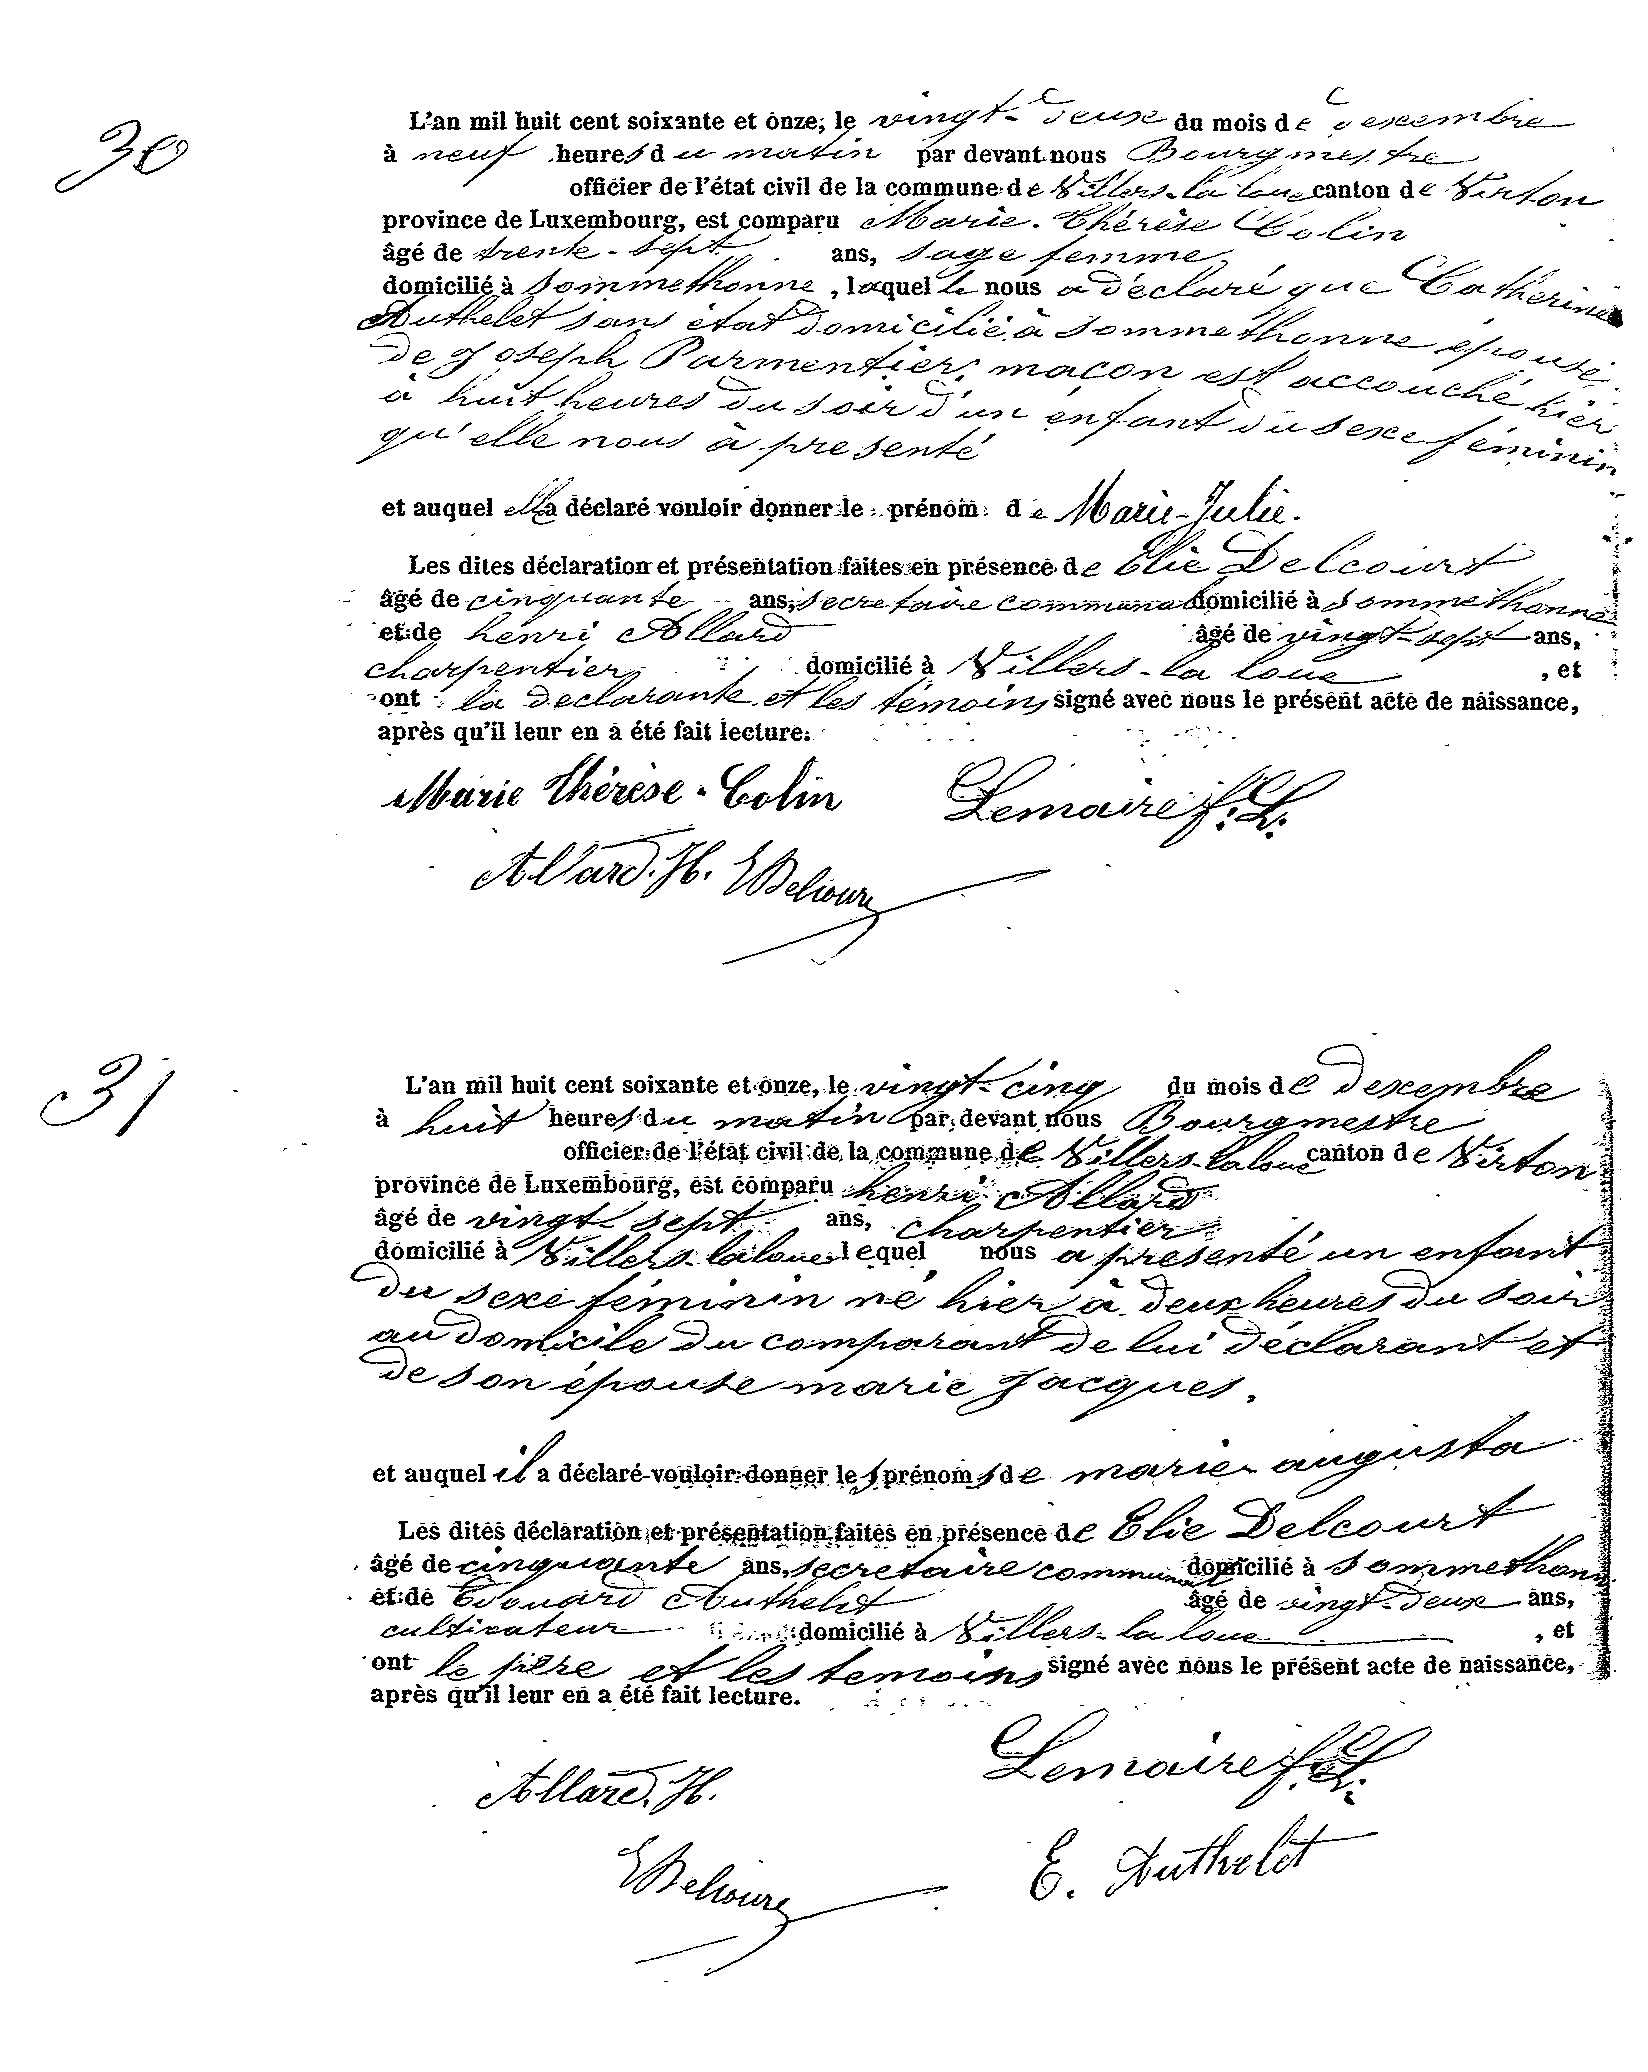 30
L'an mil huit cent soixante et onze, le vingt-deux du mois de decembre
à neuf heures du matin par devant nous Bourgmestre
officier de l'état civil de la commune de Villers-la loue canton de Virton
province de Luxembourg, est comparu Marie-Thérèse Colin
âgé de trente-sept ans, sage femme
domicilié à Sommethonne, laquelle nous a déclaré que Catherine
Authelet sans état domicilié à Sommethonne épouse
de Joseph Parmentier, maçon est accouché hier
à huit heures du soir d'un enfant du sexe féminin
qu'elle nous à presenté
et auquel elle a déclaré vouloir donner le prénom de Marie-Julie.
Les dites déclaration et présentation faites en présence de Elie Delcourt
âgé de cinquante ans, secretaire communal domicilié à Sommethonne
et de henri Allard âgé de vingt-sept ans,
charpentier domicilié à Villers-la loue, et
ont la declarante et les témoins signé avec nous le présent acte de naissance,
après qu'il leur en a été fait lecture.
Marie Thérèse-Colin Lemaire f. L.
Allard. H. EDelcourt
31
L'an mil huit cent soixante et onze, le vingt-cinq du mois de decembre
à huit heures du matin par devant nous Bourgmestre
officier de l'état civil de la commune de Villers-laloue canton de Virton
province de Luxembourg, est comparu henri Allard
âgé de vingt-sept ans, charpentier
domicilié à Villers-laloue lequel nous a presenté un enfant
du sexe féminin né hier à deux heures du soir
au domicile du comparant de lui déclarant et
de son épouse marie Jacques.
et auquel il a déclaré vouloir donner les prénoms de marie-augusta
Les dites déclaration et présentation faites en présence de Elie Delcourt
âgé de cinquante ans, secretaire communal domicilié à Sommethonne
et de Edouard Authelet âgé de vingt-deux ans,
cultivateur domicilié à Villers-la loue, et
ont le père et les temoins signé avec nous le présent acte de naissance,
après qu'il leur en a été fait lecture.
Allard. H. Lemaire f. L.
EDelcourt E. Authelet